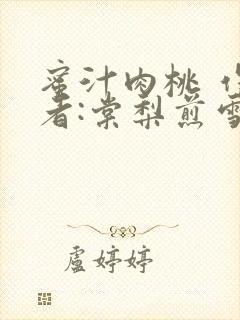 蜜汁肉桃 作
者:棠梨煎雪
盧婷婷